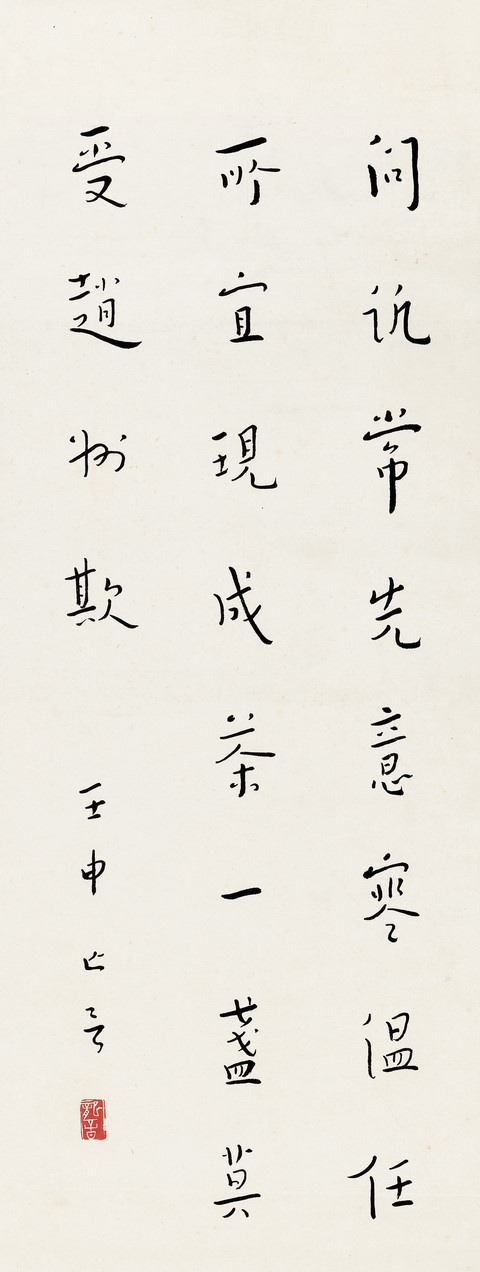 問訊常先意寒溫任
所宜現成茶一盞莫
受趙州欺
壬申亡言